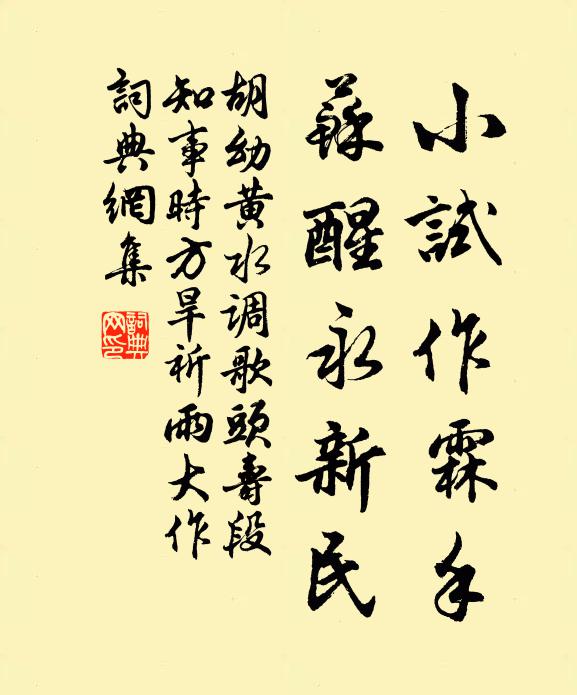 小試作霖手
蘇醒永新民
胡幼黄水调歌頭壽段
知事時方旱祈雨大作
詞典網集
詞典網印